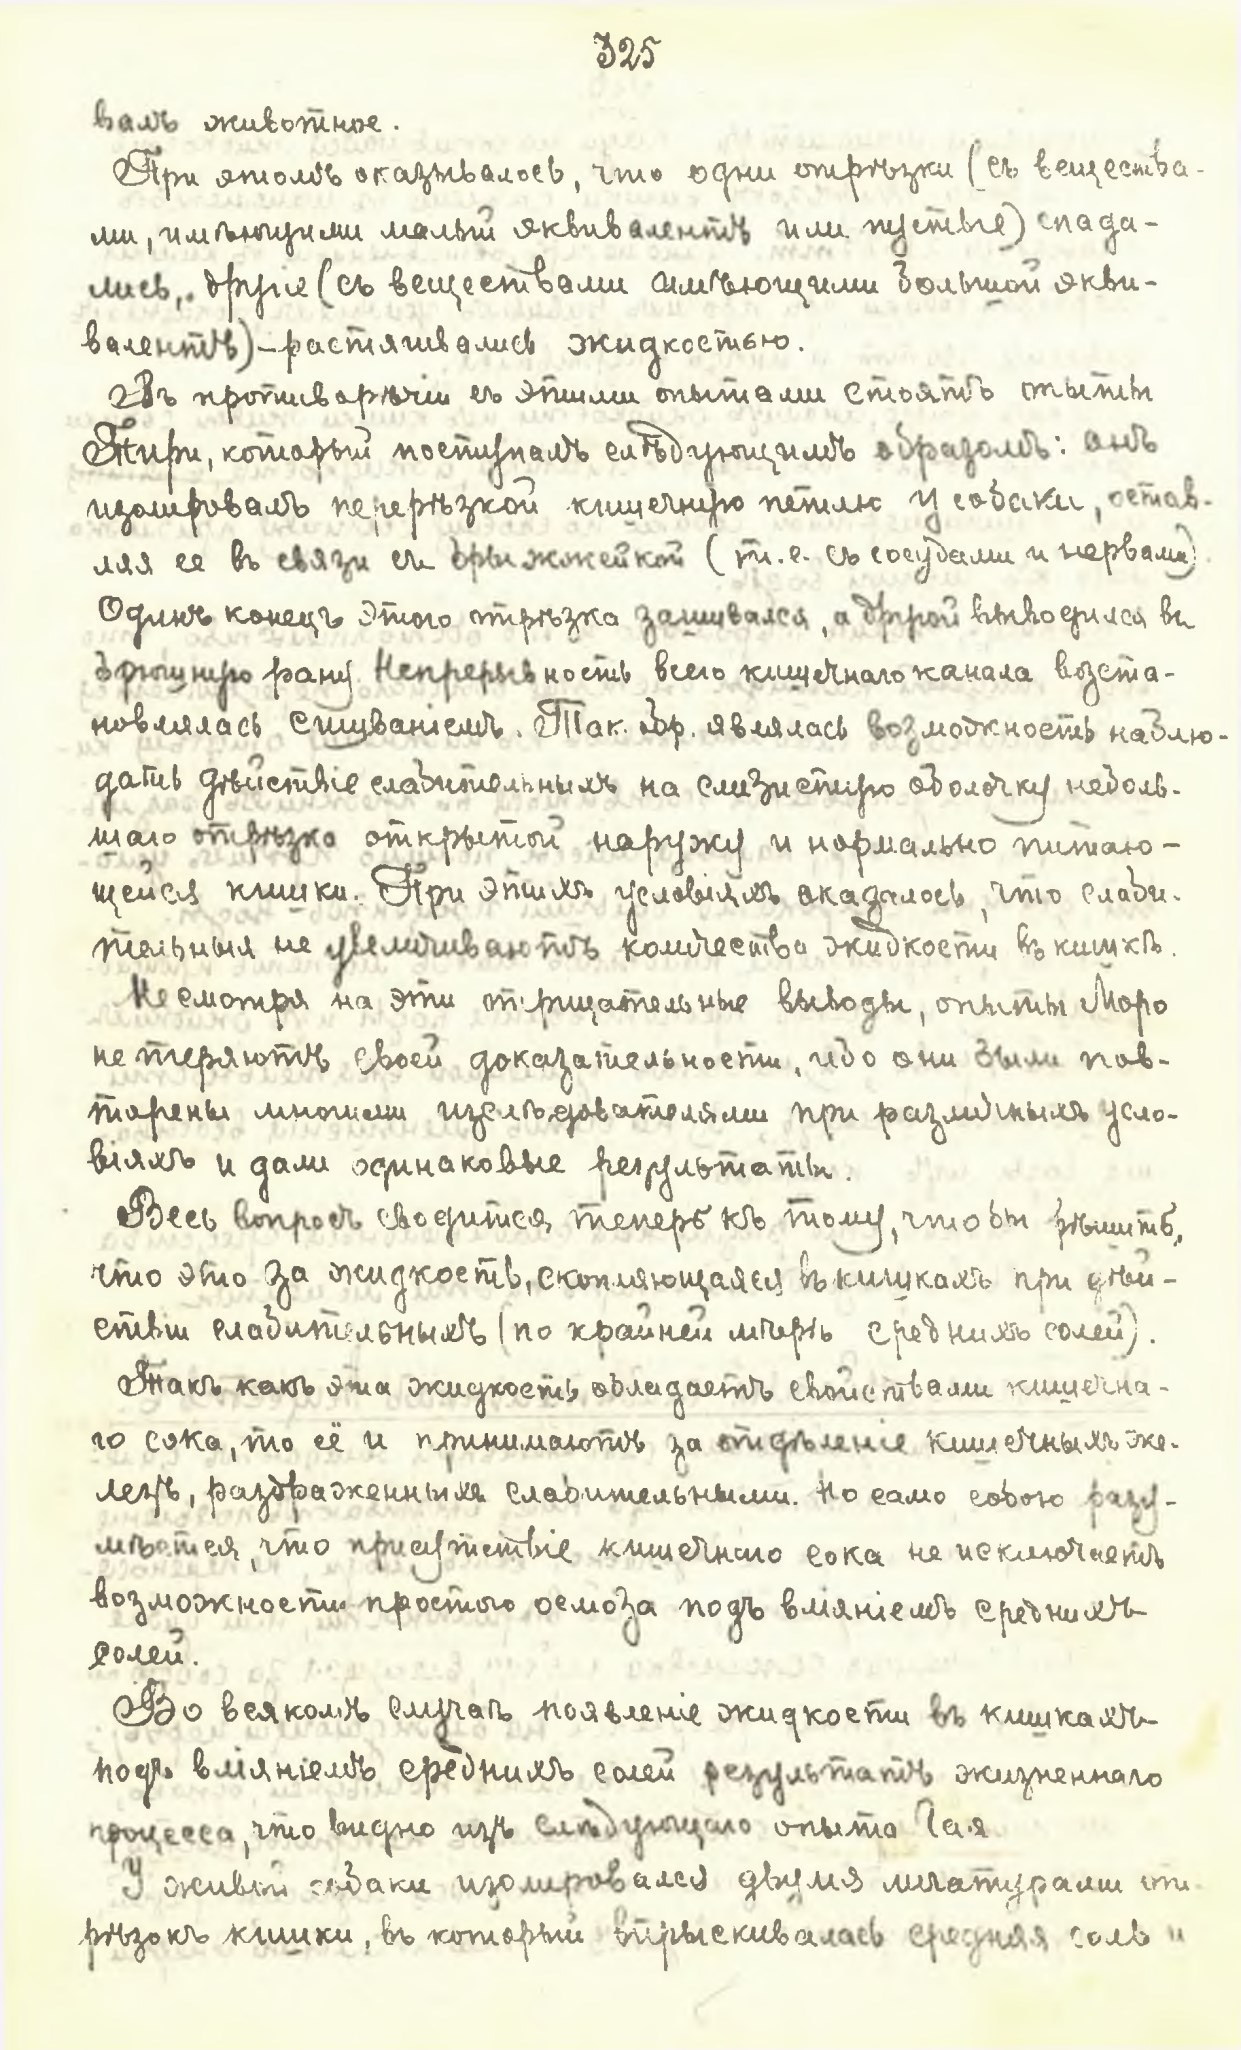 325
валъ животное.
При этомъ оказывалось, что одни отрѣзки (съ вещества-
ми, имѣющими малый эквивалентъ или пустые) спада-
лись, другіе (съ веществами имѣющими большой экви-
валентъ) – растягивались жидкостью.
Въ противорѣчіи съ этими опытами стоятъ опыты
Тири, который поступалъ слѣдующимъ образомъ: онъ
изолировалъ перерѣзкой кишечную петлю у собаки, остав-
ляя ее въ связи съ брыжжейкой (т.е. съ сосудами и нервами)
Одинъ конецъ этого отрѣзка зашивался, а другой выводился въ
брюшную рану Непрерывность всего кишечнаго канала возста-
новлялась сшиваніемъ. Так. обр. являлась возможность наблю-
дать дѣйствіе слабительныхъ на слизистую оболочку неболь-
шаго отрѣзка открытой наружу и нормально питаю-
щейся кишки. При этихъ условіяхъ оказалось, что слаби-
тельныя не увеличиваютъ количества жидкости въ кишкѣ.
Несмотря на эти отрицательные выводы, опыты Моро
не теряютъ своей доказательности, ибо они были пов-
торены многими изслѣдователями при различныхъ усло-
віяхъ и дали одинаковые результаты.
Весь вопросъ сводится теперь къ тому, чтобы рѣшить,
что это за жидкость, скопляющаяся въ кишкахъ при дѣй-
ствіи слабительныхъ (по крайней мѣрѣ среднихъ солей).
Такъ какъ эта жидкость обладаетъ свойствами кишечна-
го сока, то её и принимаютъ за отдѣленіе кишечныхъ же-
лезъ, раздраженныхъ слабительными. Но само собою разу-
мѣется, что присутствіе кишечнаго сока не исключаетъ
возможности простого осмоза подъ вліяніемъ среднихъ
солей.
Во всякомъ случаѣ появленіе жидкости въ кишкахъ
подъ вліяніемъ среднихъ солей результатъ жизненнаго
процесса, что видно изъ слѣдующаго опыта Гая
У живой собаки изолировался двумя лигатурами от-
рѣзокъ кишки, въ который впрыскивалась средняя соль и